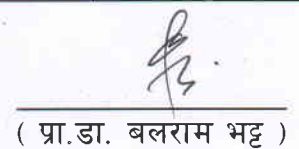 ( प्रा.डा. बलराम भट्ट )